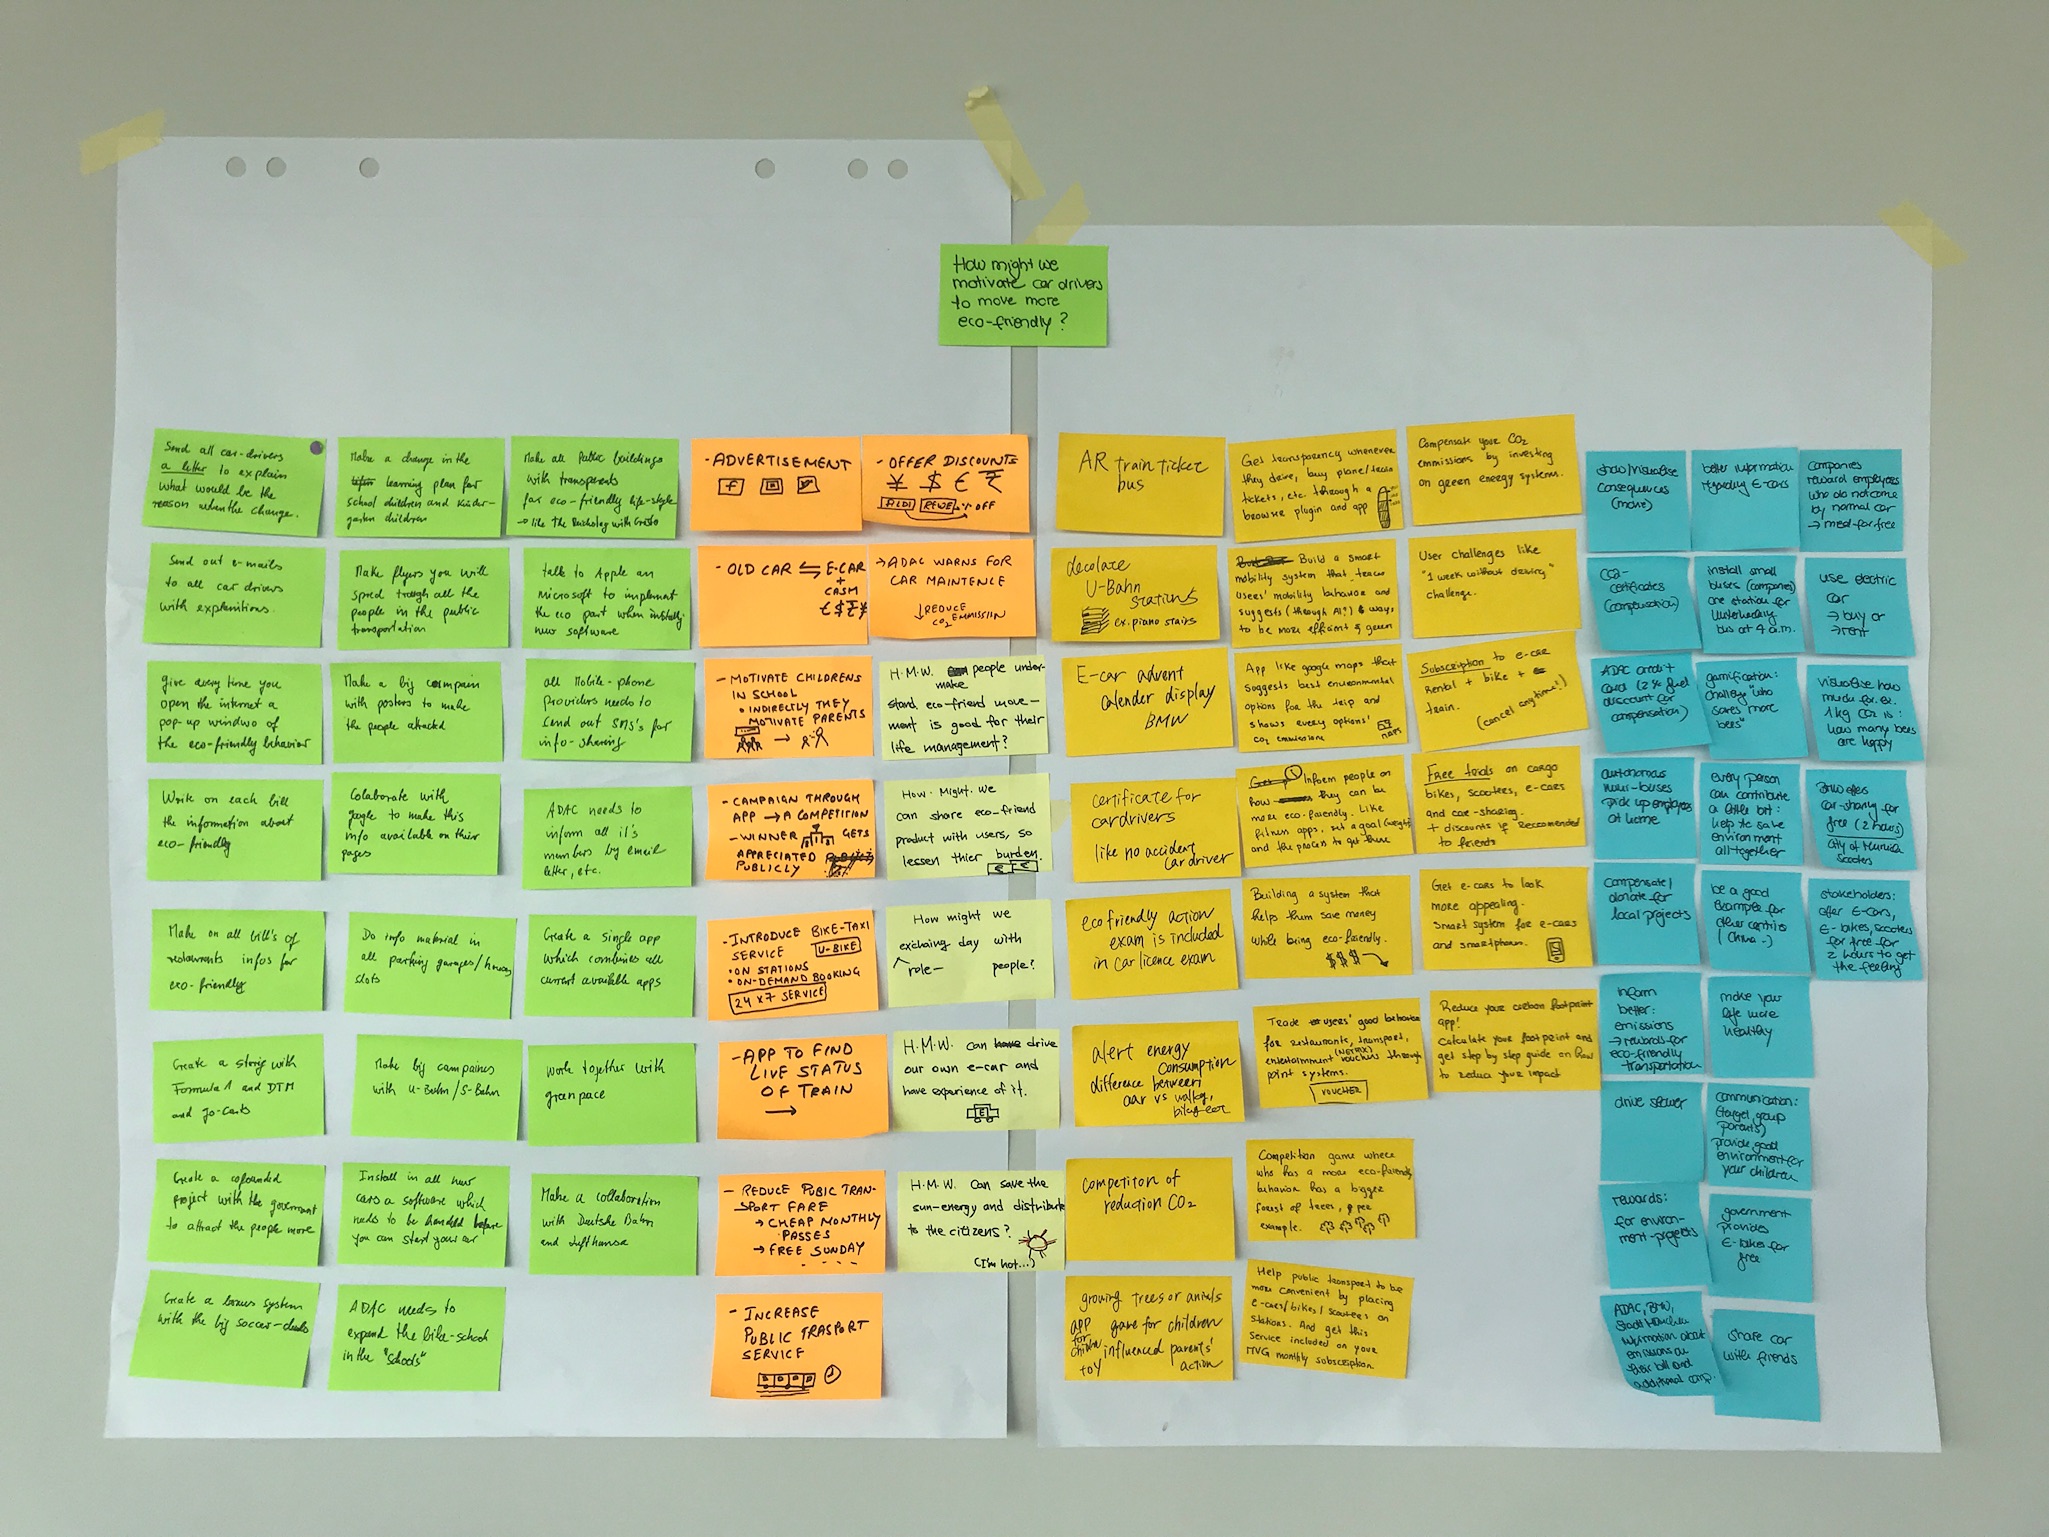 How might we
motivate car drivers
to move more
eco-friendly?
Send all car-drivers
a letter to explain
what would be the
reason when the change.
Send out e-mails
to all car drivers
with explanitions.
Give every time you
open the internet a
pop-up windwo of
the eco-friendly behavior
Write on each bill
the information about
eco-friendly
Make on all bill's of
restaurants infos for
eco-friendly
Create a story with
Formula 1 and DTM
and Go-Carts
Create a cofounded
project with the goverment
to attract the people more
Create a bonus system
with the big soccer-clubs
Make a change in the
learning plan for
school children and kinder-
garten children
Make flyers you will
spred trough all the
people in the public
transportation
Make a big campain
with posters to make
the people attracted
Colaborate with
google to make this
info available on their
pages
Do info material in
all parking garages/
slots
Make big campaines
with U-Bahn/S-Bahn
Install in all new
cars a software which
needs to be handled before
you can start your car
ADAC needs to
expand the bike-school
in the "schools"
Make all Public buildings
with transparents
for eco-friendly life-style
→ like the Reichstag with Cristo
talk to Apple an
microsoft to implement
the eco part when install.
new software
all Mobile-phone
Providers needs to
send out SMS's for
info-sharing
ADAC needs to
inform all it's
members by email
letter, etc.
Create a single app
which combines all
current available apps
work together with
greenpace
Make a collaboration
with Deutsche Bahn
and Lufthansa
- ADVERTISEMENT
f
- OLD CAR ⇋ E-CAR
+
CASH
€ $ ₹ ¥
- MOTIVATE CHILDRENS
IN SCHOOL
• INDIRECTLY THEY
MOTIVATE PARENTS
→
- CAMPAIGN THROUGH
APP → A COMPETITION
- WINNER GETS
APPRECIATED
PUBLICLY
- INTRODUCE BIKE-TAXI
SERVICE U-BIKE
• ON STATIONS
• ON-DEMAND BOOKING
24 x 7 SERVICE
- APP TO FIND
LIVE STATUS
OF TRAIN
→
- REDUCE PUBIC TRAN-
SPORT FARE
→ CHEAP MONTHLY
PASSES
→ FREE SUNDAY
.....
- INCREASE
PUBLIC TRASPORT
SERVICE
- OFFER DISCOUNTS
¥ $ € ₹
ALDI REWE % OFF
→ ADAC WARNS FOR
CAR MAINTENCE
↓ REDUCE
CO2 EMMISSION
H.M.W. people under-
make
stand, eco-friend move-
ment is good for their
life management?
How. Might. we
can share eco-friend
product with users, so
lessen thier burden.
How might we
exchaing day with
role- people?
H.M.W. can drive
our own e-car and
have experience of it.
E
H.M.W. Can save the
sun-energy and distribute
to the citizens?
(I'm hot...)
AR train ticket
bus
decolate
U-Bahn
stations
ex. piano stairs
E-car advent
calender display
BMW
certificate for
car drivers
like no accident
car driver
eco friendly action
exam is included
in car licence exam
alert energy
consumption
difference between
car vs walk,
competiton of
reduction CO2
growing trees or animals
app game for children
for influenced parents'
children action
toy
Get transparency whenever
they drive, buy plane/train
tickets, etc. through a
browser plugin and app
Build a smart
mobility system that tracks
users' mobility behavior and
suggests (through AI?) ways
to be more efficient & green
App like google maps that
suggests best environmental
options for the trip and
shows every options'
CO2 emmissions
MAPS
Inform people on
how they can be
more eco-friendly. Like
fitness apps, set a goal (weight)
and the process to get there
Building a system that
helps them save money
while being eco-friendly.
$ $ $
Trade users' good behavior
for restaurants, transport,
entertainment (NETFLIX) vouchers through
point systems.
VOUCHER
Competition game where
who has a more eco-friendly
behavior has a bigger
forest of trees, per
example.
Help public transport to be
more convenient by placing
e-cars/bikes/scooters on
stations. And get this
service included on your
MVG monthly subscription
Compensate your CO2
emmissions by investing
on green energy systems.
User challenges like
"1 week without driving"
challenge.
Subscription to e-car
rental + bike +
train.
(cancel anytime!)
Free trials on cargo
bikes, scooters, e-cars
and car-sharing.
+ discounts if reccomended
to friends
Get e-cars to look
more appealing.
Smart system for e-cars
and smartphones.
Reduce your carbon footprint
app!
Calculate your footprint and
get step by step guide on how
to reduce your impact
show/visualise
consequences
(movie)
CO2-
certificates
(compensation)
ADAC credit
card (2% fuel
discount for
compensation)
autonomous
mini-buses
pick up employees
at home
compensate/
donate for
local projects
inform
better:
emissions
→ rewards for
eco-friendly
transportation
drive slower
rewards:
for environ-
ment-projects
ADAC, BMW,
Stadt München
information about
emissions on
their bill and
additional comp.
better information
regarding E-cars
install small
buses (companies)
one station for
bus at 4 a.m.
gamification:
challenge "who
saves more
bees"
every person
can contribute
a little bit:
help to save
environment
all together
be a good
example for
other contries
(China..)
make your
life more
healthy
communication:
(target group
parents)
provide good
environment for
your children
government
provides
E-bikes for
free
share car
with friends
companies
reward employees
who do not come
by normal car
→ meal for free
use electric
car
→ buy or
→ rent
visualise how
much for ex.
1 kg CO2 is:
how many bees
are happy
BMW offers
car-sharing for
free (2 hours)
City of Munich
scooters
stakeholders:
offer E-cars,
E-bikes, scooters
for free for
2 hours to get
the feeling